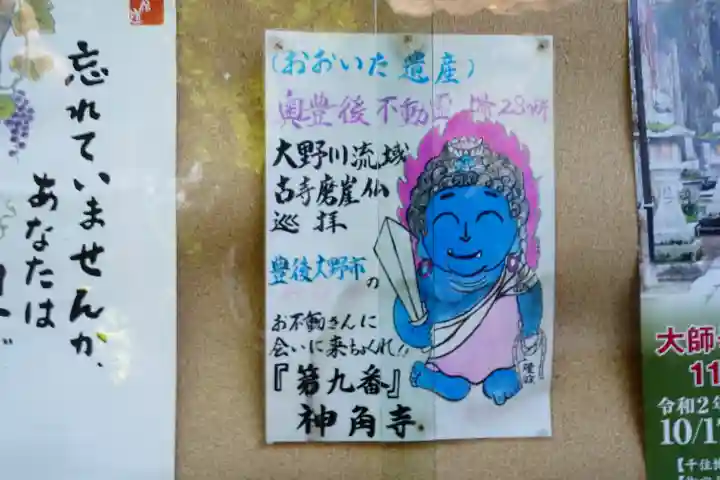 忘れていませんか、
あなたは
(おおいた遺産)
奥豊後不動霊場28ヶ所
大野川流域
古寺磨崖仏
巡拝
豊後大野市の
お不動さんに
会いに来ちょくれ!!
『第九番』
神角寺
大師
11
令和2年
10/1